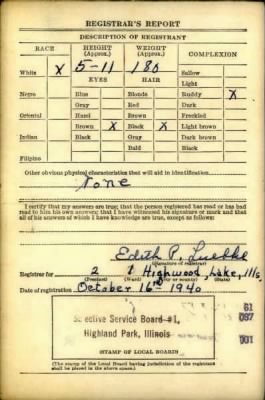 REGISTRAR'S REPORT
DESCRIPTION OF REGISTRANT
RACE HEIGHT (Approx.) WEIGHT (Approx.) COMPLEXION
White X 5-11 180 Sallow
EYES HAIR Light
Negro Blue Blonde Ruddy X
Gray Red Dark
Oriental Hazel Brown Freckled
Brown X Black X Light brown
Indian Black Gray Dark brown
Bald Black
Filipino
Other obvious physical characteristics that will aid in identification
None
I certify that my answers are true; that the person registered has read or has had
read to him his own answers; that I have witnessed his signature or mark and that
all of his answers of which I have knowledge are true, except as follows:
Edith P. Luebke
(Signature of registrar)
Registrar for 2 1 Highwood, Lake, Ills.
(Precinct) (Ward) (City or county)
Date of registration October 16th 1940
Selective Service Board #1,
Highland Park, Illinois
STAMP OF LOCAL BOARD
(The stamp of the Local Board having jurisdiction of the registrant
shall be placed in the above space.)